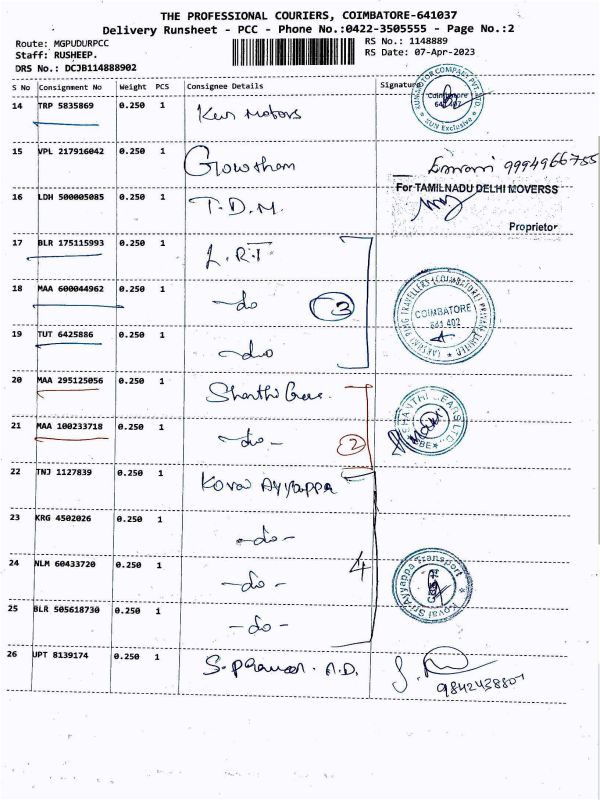 THE PROFESSIONAL COURIERS, COIMBATORE-641037
Delivery Runsheet - PCC - Phone No.:0422-3505555 - Page No.:2
Route: MGPUDURPCC
Staff: RUSHEEP.
DRS No.: DCJB114888902
RS No.: 1148889
RS Date: 07-Apr-2023
S No Consignment No Weight PCS Consignee Details Signature
14 TRP 5835869 0.250 1 Kun Motors
KUN MOTOR COMPANY PVT. LTD.
Coimbatore
641 407
SUN Exclusive
15 VPL 217916042 0.250 1 Gowtham
9994966755
16 LDH 500005085 0.250 1 T.D.M.
For TAMILNADU DELHI MOVERSS
Proprietor
17 BLR 175115993 0.250 1 L.R.T
18 MAA 600044962 0.250 1 -do 3
COIMBATORE
641 402
19 TUT 6425886 0.250 1 -do
20 MAA 295125056 0.250 1 Shanthi Gears.
SHANTHI GEARS LTD.,
21 MAA 100233718 0.250 1 -do- 2
22 TNJ 1127839 0.250 1 Kovai Ayyappa
23 KRG 4502026 0.250 1 -do-
24 NLM 60433720 0.250 1 -do- 4
Kovai Sri Ayyappa Transport
25 BLR 505618730 0.250 1 -do-
26 JPT 8139174 0.250 1
9842438807